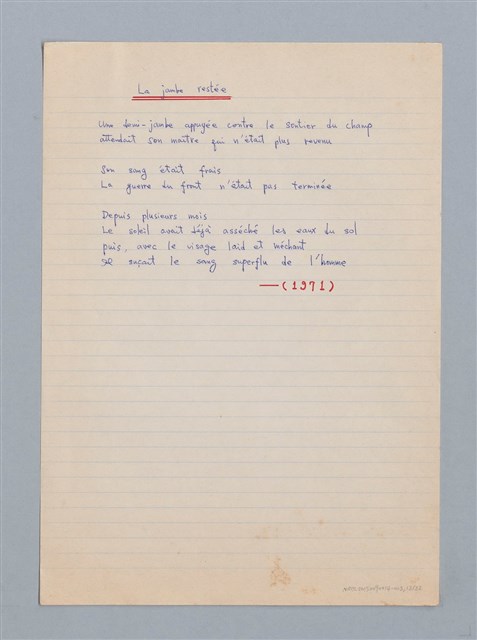 La jambe restée
Une demi-jambe appuyée contre le sentier du champ
attendait son maître qui n'était plus revenu
Son sang était frais
La guerre du front n'était pas terminée
Depuis plusieurs mois
Le soleil avait déjà asséché les eaux du sol
puis, avec le visage laid et méchant
Il suçait le sang superflu de l'homme
—(1971)